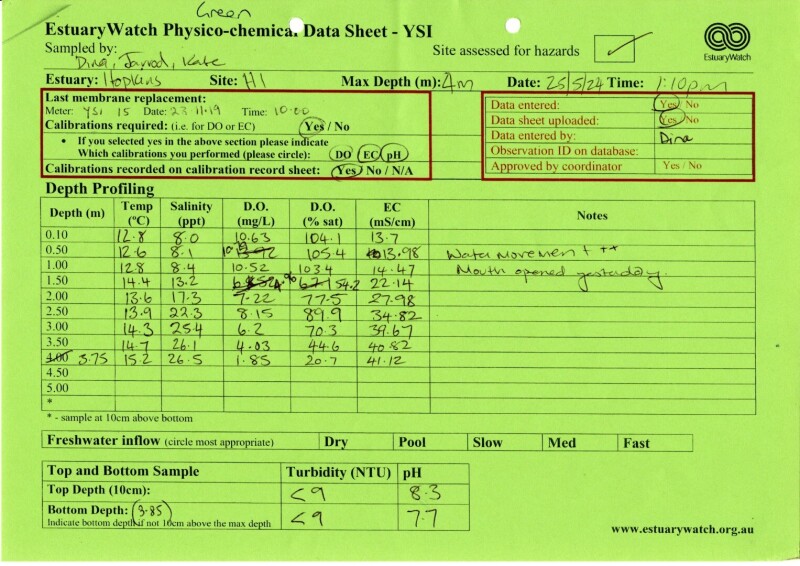 Green
EstuaryWatch Physico-chemical Data Sheet - YSI
Sampled by: Dina, Jarrod, Kate
Site assessed for hazards ✓
EstuaryWatch
Estuary: Hopkins Site: H1 Max Depth (m): 4m Date: 25/5/24 Time: 1:10pm
Last membrane replacement:
Meter: YSI 15 Date: 23-11-19 Time: 10:00
Calibrations required: (i.e. for DO or EC) Yes / No
• If you selected yes in the above section please indicate
Which calibrations you performed (please circle): DO EC pH
Calibrations recorded on calibration record sheet: Yes / No / N/A
Data entered: Yes / No
Data sheet uploaded: Yes / No
Data entered by: Dina
Observation ID on database:
Approved by coordinator Yes / No
Depth Profiling
Depth (m) Temp (ºC) Salinity (ppt) D.O. (mg/L) D.O. (% sat) EC (mS/cm) Notes
0.10 12.8 8.0 10.63 104.1 13.7
0.50 12.6 8.1 105.4 13.98 Water movement ++
1.00 12.8 8.4 10.52 103.4 14.47 Mouth opened yesterday.
1.50 14.4 13.2 54.2 22.14
2.00 13.6 17.3 7.22 77.5 27.98
2.50 13.9 22.3 8.15 89.9 34.82
3.00 14.3 25.4 6.2 70.3 39.67
3.50 14.7 26.1 4.03 44.6 40.82
4.00 3.75 15.2 26.5 1.85 20.7 41.12
4.50
5.00
*
* - sample at 10cm above bottom
Freshwater inflow (circle most appropriate) Dry Pool Slow Med Fast
Top and Bottom Sample Turbidity (NTU) pH
Top Depth (10cm): <9 8.3
Bottom Depth: (3.85) <9 7.7
Indicate bottom depth if not 10cm above the max depth
www.estuarywatch.org.au